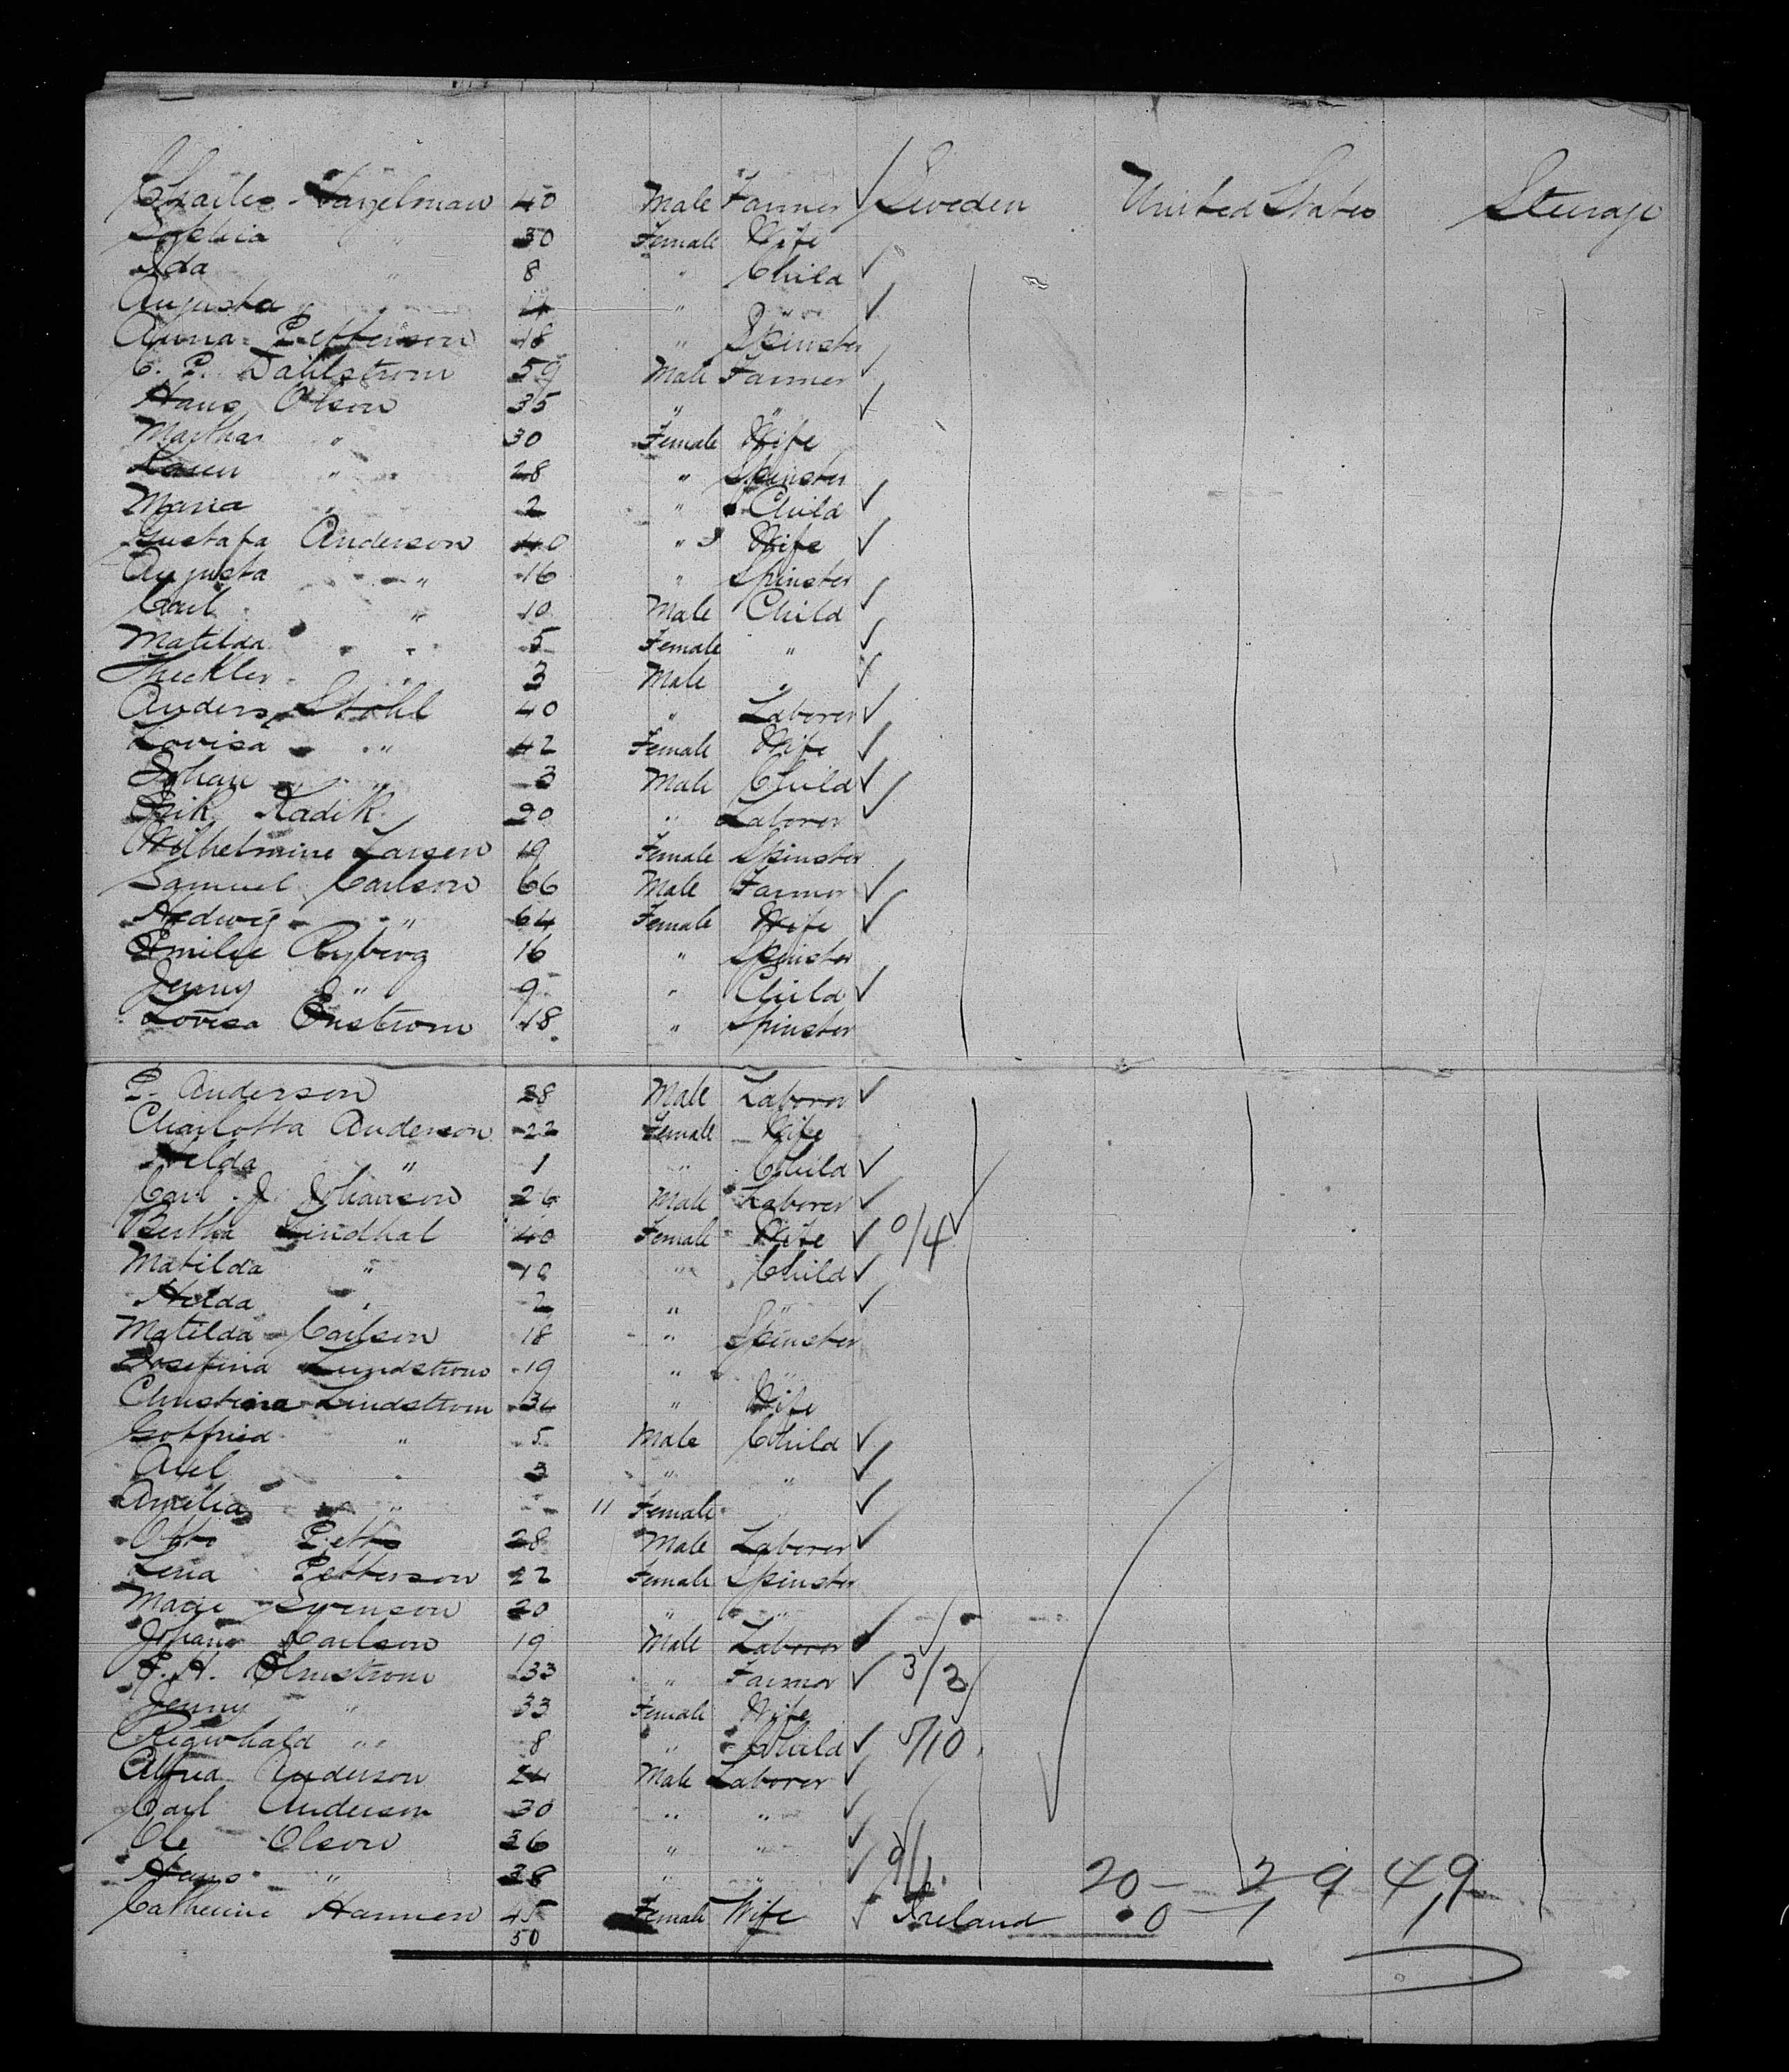 Charles Hagelman 40 Male Farmer ✓ Sweden United States Steerage
Sophia " 30 Female Wife
Ida " 8 " Child ✓
Augusta " 4 " " ✓
Anna Petterson 18 " Spinster
C. P. Dahlstrom 59 Male Farmer ✓
Hans Olson 35 " " ✓
Martha " 30 Female Wife
Karen " 28 " Spinster
Maria " 2 " Child ✓
Gustafa Anderson 40 " Wife ✓
Augusta " 16 " Spinster
Carl " 10 Male Child ✓
Matilda " 5 Female " ✓
Theckler " 3 Male " ✓
Anders Stohl 40 " Laborer ✓
Lovisa " 42 Female Wife ✓
Johan " 3 Male Child ✓
Erik Kadik 20 " Laborer ✓
Wilhelmine Larsen 19 Female Spinster
Samuel Carlson 66 Male Farmer ✓
Hedwig " 64 Female Wife ✓
Emilie Ryberg 16 " Spinster
Jenny " 9 " Child ✓
Lovisa Enstrom 18 " Spinster
P. Anderson 28 Male Laborer ✓
Charlotta Anderson 22 Female Wife
Hilda " 1 " Child ✓
Carl J. Johanson 26 Male Laborer ✓
Bertha Lindhal 40 Female Wife ✓ 0/4 ✓
Matilda " 10 " Child ✓
Hilda " 2 " " ✓
Matilda Carlson 18 " Spinster
Josefina Lundstrom 19 " "
Christina Lindstrom 34 " Wife
Gotfried " 5 Male Child ✓
Axel " 3 " " ✓
Amelia " 11 Female " ✓
Otto Petts 28 Male Laborer ✓
Lena Petterson 22 Female Spinster
Marie Svenson 20 " "
Johan Carlson 19 Male Laborer ✓
P. H. Elmstrom 33 " Farmer ✓ 3/3
Jenny " 33 Female Wife
Regwhald " 8 " Child ✓ 5/10
Alfred Anderson 24 Male Laborer ✓
Carl Anderson 30 " " ✓
Ole Olson 26 " " ✓
Hans " 38 " " ✓ 9/1. 20 - 29 49
Catherine Hannen 45 Female Wife ✓ Ireland 0 - 1 1
50